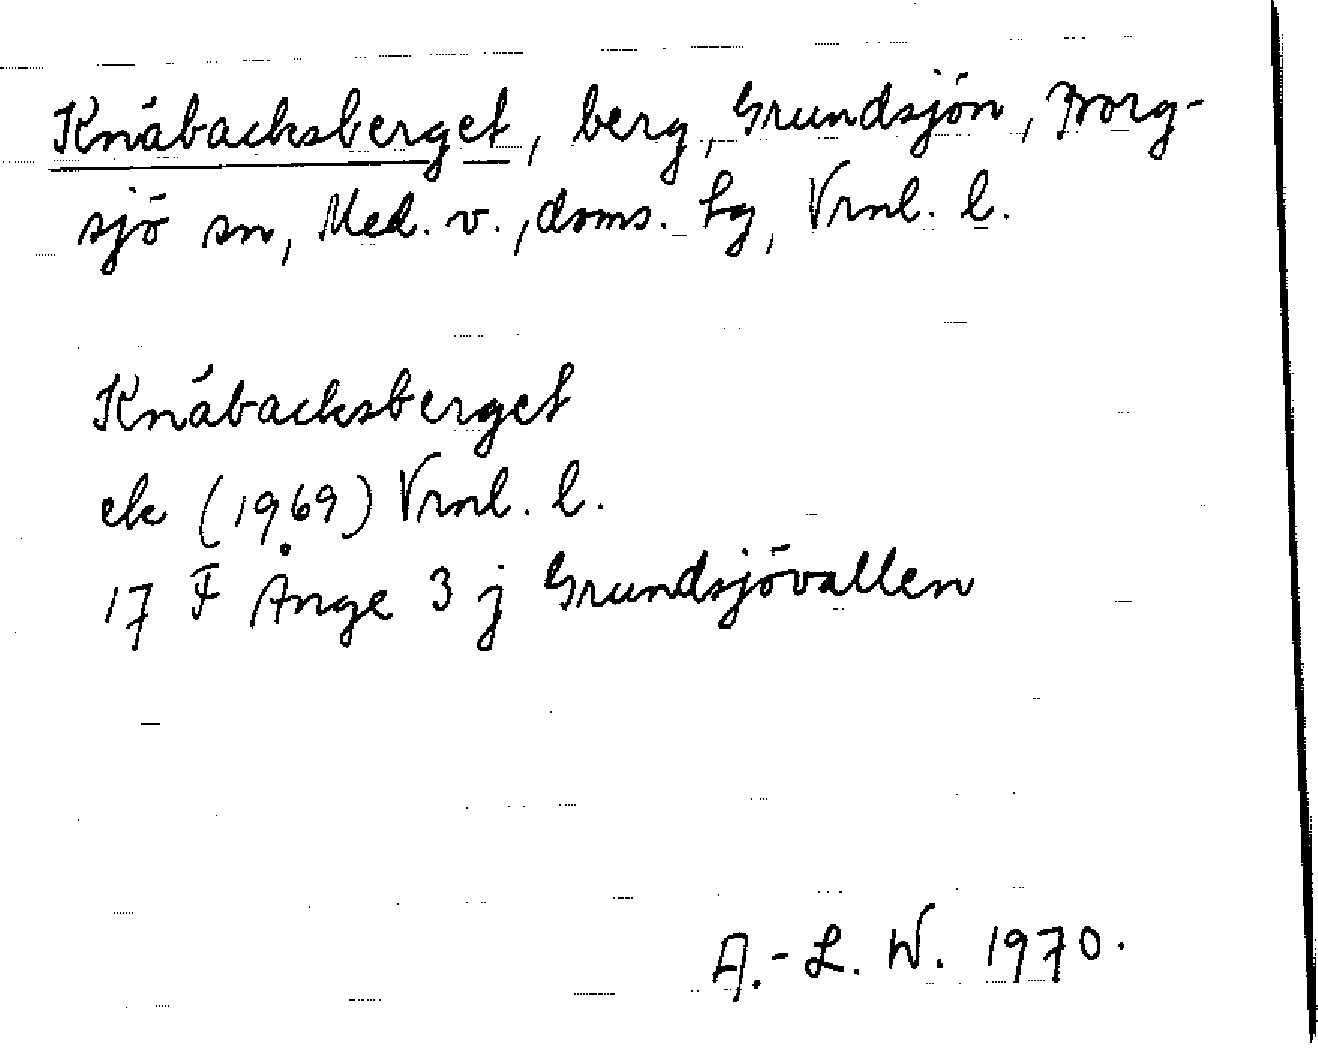 Knåbacksberget, berg, Grundsjön, Borg-
sjö sn, Med. v., doms. Lg, Vrnl. l.
Knåbacksberget
ek (1969) Vrnl. l.
17 F Ånge 3 j Grundsjövallen
A.-L. W. 1970.